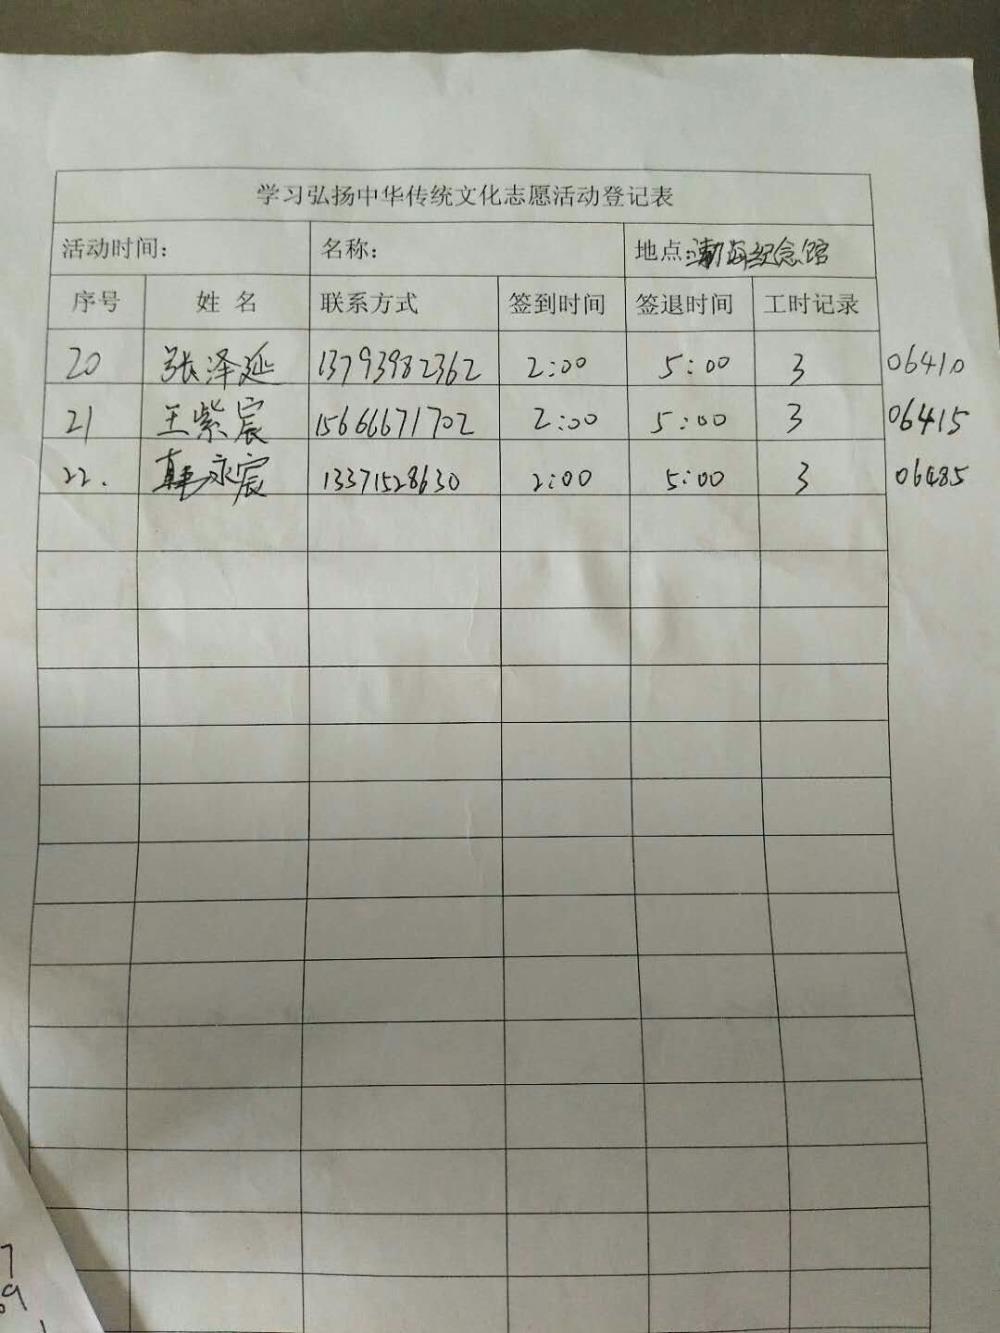 学习弘扬中华传统文化志愿活动登记表
活动时间: 名称: 地点:渤海纪念馆
序号 姓 名 联系方式 签到时间 签退时间 工时记录
20 张泽延 13793982362 2:00 5:00 3 06410
21 王紫宸 15666671702 2:00 5:00 3 06415
22. 永宸 13371528630 2:00 5:00 3 06485
7
69